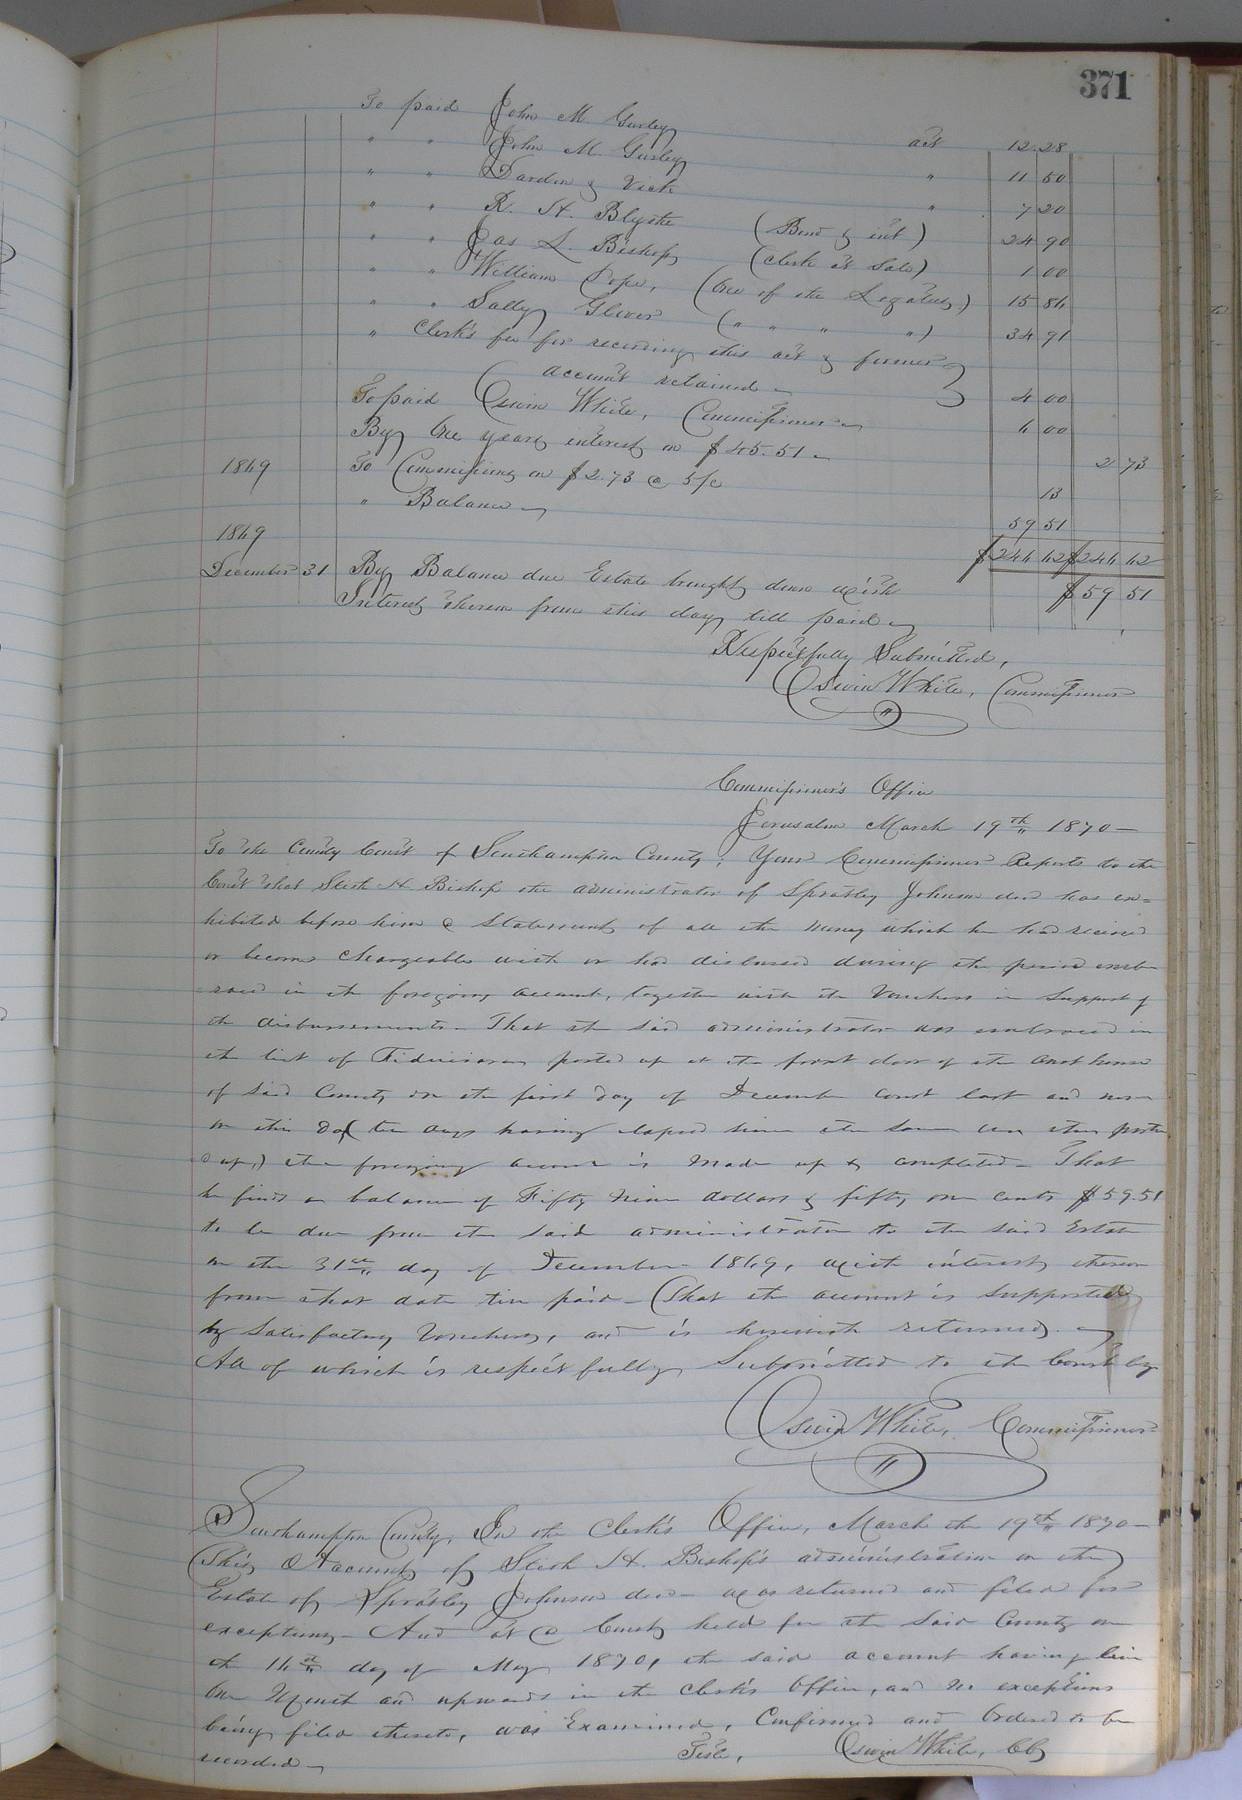 371
To paid John M Gurley act 12.28
" " John M Gurley " 11 50
" " Darden & Vick " 7 20
" " R. H. Blythe (Bond & int) 24 90
" " Jas L. Bishop (Clerk at Sale) 1 00
" " William Pope, (One of the Legatees) 15 86
" " Sally Glover ( " " " " ) 34 91
" Clerk's fee for recording this act & former
account retained 4 00
To paid Oswin White, Commissioner 6 00
By One years interest on $45.51 2 73
1869 To Commissions on $2.73 @ 5/c 13
" Balance 59 51
1869 $246 62 $246 62
December 31 By Balance due Estate brought down with $59 51
Interest thereon from this day till paid
Respectfully Submitted,
Oswin White, Commissioner
Commissioner's Office
Jerusalem March 19th 1870
To the County Court of Southampton County; Your Commissioner Reports to the
Court that H Bishop the administrator of Spratley Johnson decd has ex=
hibited before him a Statement of all the money which he had received
or become Chargeable with or had disbursed during the period emb
raced in the foregoing account, together with the Vouchers in Support of
the disbursements. That the said administrator was embraced in
the list of Fiduciaries posted up at the front door of the Court house
of said County on the first day of December Court last and now
on this day (ten days having elapsed since the same was then poste
d up,) the foregoing account is made up & completed. That
he finds a balance of Fifty Nine dollars & fifty one cents $59.51
to be due from the said administrator to the said Estate
on the 31st day of December 1869, with interest thereon
from that date till paid. That the account is supported
by Satisfactory Vouchers, and is herewith returned.
All of which is respectfully Submitted to the Court by
Oswin White, Commissioner
Southampton County, In the Clerk's Office, March the 19th 1870
This Account of H. Bishop's administration on the
Estate of Spratley Johnson decd was returned and filed for
exceptions. And at a Court held for the said County on
the 16th day of May 1870, the said account having lain
One Month and upwards in the Clerk's Office, and no exceptions
being filed thereto, was Examined, Confirmed and Ordered to be
recorded Teste, Oswin White,